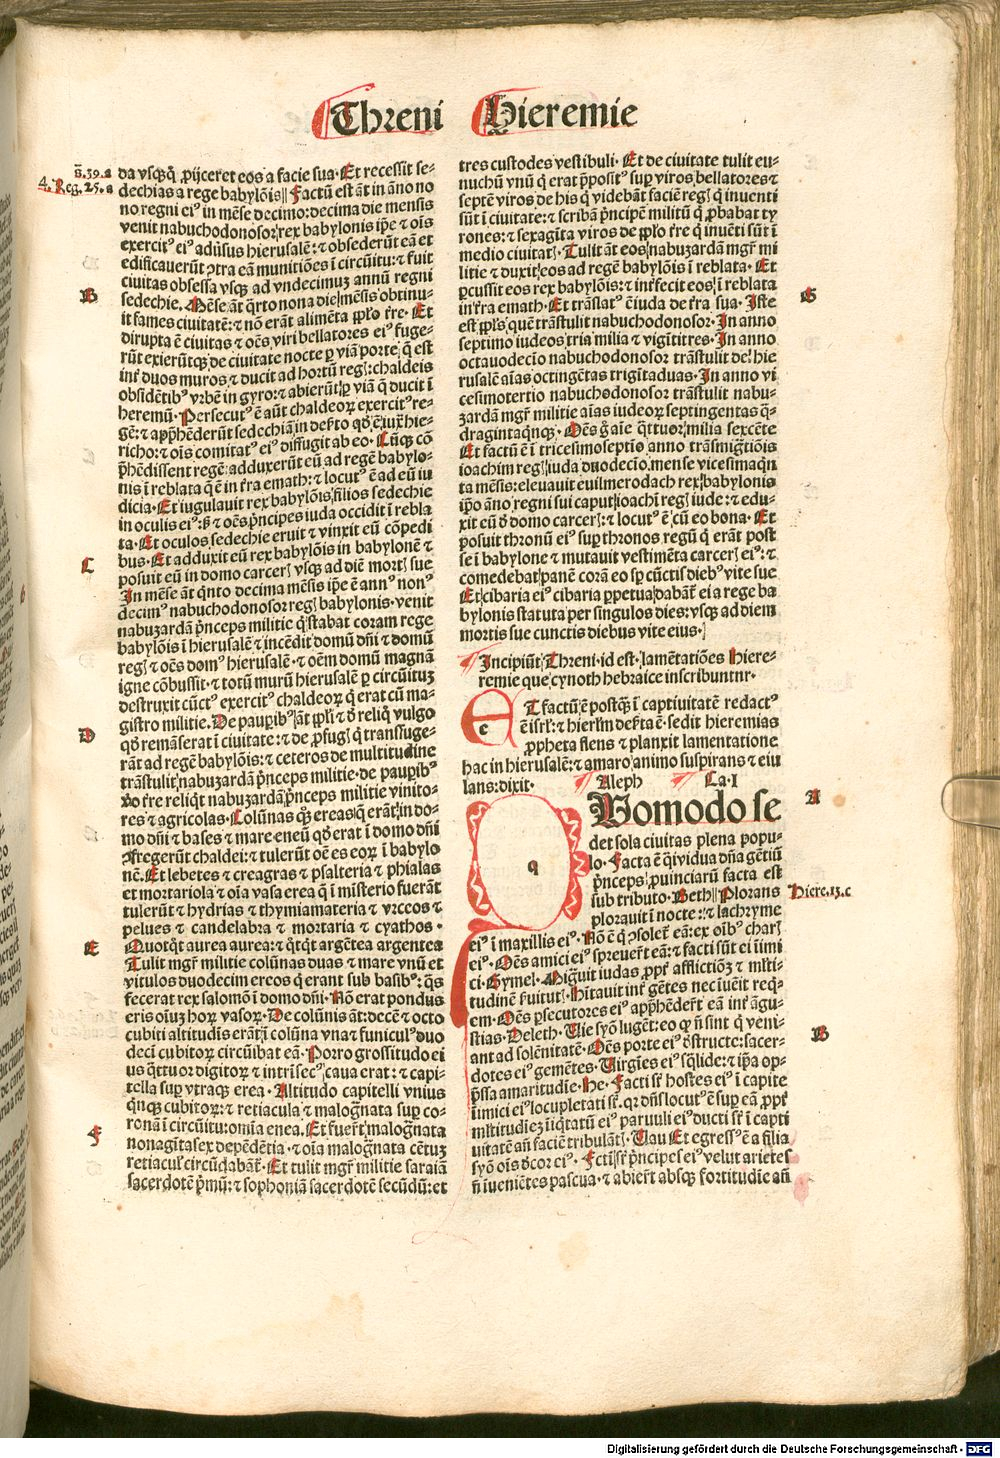 Threni Hieremie
s̄.39.a
4. Reg. 25. a
da vsq̄q̄ ꝓijceret eos a facie sua. Et recessit se-
dechias a rege babylōis Factū est āt in āno no
no regni ei⁹ in mēse decimo: decima die mensis
venit nabuchodonosor rex babylonis ip̄e ⁊ oīs
exercit⁹ ei⁹ aduersus hierusalē: ⁊ obsederūt eā et
edificauerūt ꝯtra eā munitiōes ī circūitu: ⁊ fuit
ciuitas obsessa vsq̄ ad vndecimuʒ annū regni
B
sedechie. Mēse āt q̄rto nona die mēsis obtinu-
it fames ciuitatē: ⁊ nō erāt alimēta ppl̄o t̄re. Et
dirupta ē ciuitas ⁊ oēs viri bellatores ei⁹ fuge-
rūt exierūtqʒ de ciuitate nocte ꝑ viā porte q̄ est
int̄ duos muros ⁊ ducit ad hortū regꝭ: chaldeis
obsidētibꝰ vrbē in gyro: ⁊ abierūt ꝑ viā q̄ ducit ī
heremū. Persecut⁹ ē aūt chaldeoꝝ exercit⁹ re-
gē: ⁊ app̄hēderūt sedechiā in deſ̄to qd̄ ē iuxͭ hie-
richo: ⁊ oīs comitat⁹ ei⁹ diffugit ab eo. Cūqʒ cō
p̄hēdissent regē: adduxerūt eū ad regē babylo-
nis ī reblata q̄ ē in t̄ra emath: ⁊ locut⁹ ē ad eū iu
dicia. Et iugulauit rex babylōis filios sedechie
in oculis ei⁹: sꝫ ⁊ oēs p̄ncipes iuda occidit ī rebla
ta. Et oculos sedechie eruit ⁊ vinxit eū cōpedi
C
bus. Et adduxit eū rex babylōis in babylonē ⁊
posuit eū in domo carcerꝭ vsqʒ ad diē mortꝭ sue
In mēse āt q̄nto decima mēsis ip̄e ē ann⁹ non⁹
decim⁹ nabuchodonosor regꝭ babylonis. venit
nabuzardā p̄nceps militie q̄ stabat coram rege
babylōis ī hierusalē ⁊ incēdit domū dn̄i ⁊ domū
regꝭ ⁊ oēs dom⁹ hierusalē. ⁊ oēm domū magnā
igne cōbussit. ⁊ totū murū hierusalē ꝑ circūituʒ
destruxit cūct⁹ exercit⁹ chaldeoꝝ q̄ erat cū ma-
gistro militie. De paupibꝰ āt ppl̄i ⁊ d̄ reliq̄ vulgo
D
qd̄ remāserat ī ciuitate: ⁊ de ꝓfugꝭ q̄ transfuge-
rāt ad regē babylōis: ⁊ ceteros de multitudine
trāstulit nabuzardā p̄nceps militie. de paupibꝰ
vo t̄re reliqͭ nabuzardā p̄nceps militie vinito-
res ⁊ agricolas. Colūnas q̄qʒ ereas q̄ erāt in do-
mo dn̄i ⁊ bases ⁊ mare eneū qd̄ erat ī domo dn̄i
ꝯfregerūt chaldei: ⁊ tulerūt oē es eoꝝ ī babylo
nē. Et lebetes ⁊ creagras ⁊ psalteria ⁊ phialas
et mortariola ⁊ oīa vasa erea q̄ ī misterio fuerāt
tulerūt ⁊ hydrias ⁊ thymiamateria ⁊ vrceos ⁊
pelues ⁊ candelabra ⁊ mortaria ⁊ cyathos.
E
Quotq̄t aurea aurea: ⁊ q̄tq̄t argētea argentea
Tulit mḡr militie colūnas duas ⁊ mare vnū et
vitulos duodecim ereos q̄ erant sub basibꝰ: q̄s
fecerat rex salomō ī domo dn̄i. Nō erat pondus
eris oīuʒ hoꝝ vasoꝝ. De colūnis āt: decē ⁊ octo
cubiti altitudīs erāt ī colūna vna ⁊ funicul⁹ duo
deci cubitoꝝ circūibat eā. Porro grossitudo ei
us q̄ttuor digitoꝝ ⁊ intrīsec⁹ caua erat: ⁊ capi-
tella suꝑ vtraqʒ erea. Altitudo capitelli vnius
q̄nqʒ cubitoꝝ: ⁊ retiacula ⁊ malog̅nata suꝑ co-
F
ronā ī circūitu: omīa enea. Et fuer̄t malog̅nata
nonagīta sex depēdētia. ⁊ oīa malog̅nata cētuʒ
retiacul̄ circūdabāt. Et tulit mḡr militie saraiā
sacerdotē p̄mū: ⁊ sophoniā sacerdotē secūdū: et
tres custodes vestibuli. Et de ciuitate tulit eu-
nuchū vnū q̄ erat p̄posit⁹ suꝑ viros bellatores ⁊
septē viros de his q̄ videbāt faciē regꝭ q̄ inuenti
sūt ī ciuitate: ⁊ scribā p̄ncipē militū q̄ ꝓbabat ty
rones: ⁊ sexagīta viros de ppl̄o t̄re q̄ inuēti sūt ī
medio ciuitatꝭ. Tulit āt eos nabuzardā mḡr mi
litie ⁊ duxit eos ad regē babylōis ī reblata. Et
ꝑcussit eos rex babylōis: ⁊ int̄fecit eos ī reblata
G
in t̄ra emath. Et trāslat⁹ ē iuda de t̄ra sua. Iste
est ppl̄s quē trāstulit nabuchodonosor. In anno
septimo iudeos tria milia ⁊ vigītitres. In anno
octauodecīo nabuchodonosor trāstulit de hie
rusalē aīas octingētas trigītaduas. In anno vi
cesimotertio nabuchodonosor trāstulit nabu-
zardā mḡr militie aīas iudeoꝝ septingentas q̄-
dragintaq̄nqʒ. Oēs g̊ aīe q̄ttuor milia sexcēte
Et factū ē ī tricesimoseptīo anno trāsmigrationis
ioachim regꝭ iuda duodecīo mense vicesimaq̄n
ta mēsis: eleuauit euilmerodach rex babylonis
ip̄o āno regni sui caput ioachī regꝭ iude: ⁊ edu-
xit eū d̄ domo carcerꝭ: ⁊ locut⁹ ē cū eo bona. Et
posuit thronū ei⁹ suꝑ thronos regū q̄ erāt post
se ī babylone ⁊ mutauit vestimēta carcerꝭ ei⁹: ⁊
comedebat panē corā eo sꝑ cūctis diebꝰ vite sue
Et cibaria ei⁹ cibaria ꝑpetua dabāt̄ ei a rege ba
bylonis statuta per singulos dies: vsqʒ ad diem
mortis sue cunctis diebus vite eius.
Incipiūt Threni. id est. lamētatiōes Hiere-
remie que cynoth hebraice inscribuntnr.
Et factū ē postqʒ ī captiuitatē redact⁹
ē isrl̄: ⁊ hierlm̄ deſ̄ta ē: sedit hieremias
ꝓpheta flens ⁊ planxit lamentatione
hac in hierusalē: ⁊ amaro animo suspirans ⁊ eiu
lans: dixit. Aleph Ca. I
A
q Uomodo se
det sola ciuitas plena popu-
lo. Facta ē q̄ vidua dn̄a gētiū
p̄nceps ꝓuinciarū facta est
sub tributo. Beth Plorans
Hiere.13.c
plorauit ī nocte: ⁊ lachryme
ei⁹ ī maxillis ei⁹. Nō ē q̄ ꝯsolet̄ eā: ex oībꝰ charꝭ
ei⁹. Oēs amici ei⁹ spreuer̄t eā: ⁊ facti sūt ei iīmi
ci. Gymel. Migͣuit iudas ꝓpt̄ afflictiōʒ ⁊ ml̄ti-
tudinē ſuitutꝭ. Hītauit int̄ gētes nec iuēit req̄-
em. Oēs ꝑsecutores ei⁹ app̄hēder̄t eā int̄ āgu-
B
stias. Deleth. Uie syō lugēt: eo qꝫ nō sint q̄ veni-
ant ad solēnitatē. Oēs porte ei⁹ dstructe: sacer-
dotes ei⁹ gemētes. Uirgīes ei⁹ sq̄lide: ⁊ ip̄a op-
p̄ssa amaritudīe. He. Facti sr̄t hostes ei⁹ ī capite
īimici ei⁹ locupletati sr̄t. qꝛ dn̄s locut⁹ ē suꝑ eā ꝓpt̄
ml̄titudinēʒ iīqtatū ei⁹ paruuli ei⁹ ducti sr̄t ī capti
uitatē an̄ faciē tribulātꝭ. Uau Et egress⁹ ē a filia
syō oīs dcor ei⁹. Fcti sr̄t p̄ncipes ei⁹ velut arietes
n̄ iueniētes pascua. ⁊ abier̄t absqʒ fortitudīe an̄
Digitalisierung gefördert durch die Deutsche Forschungsgemeinschaft - DFG